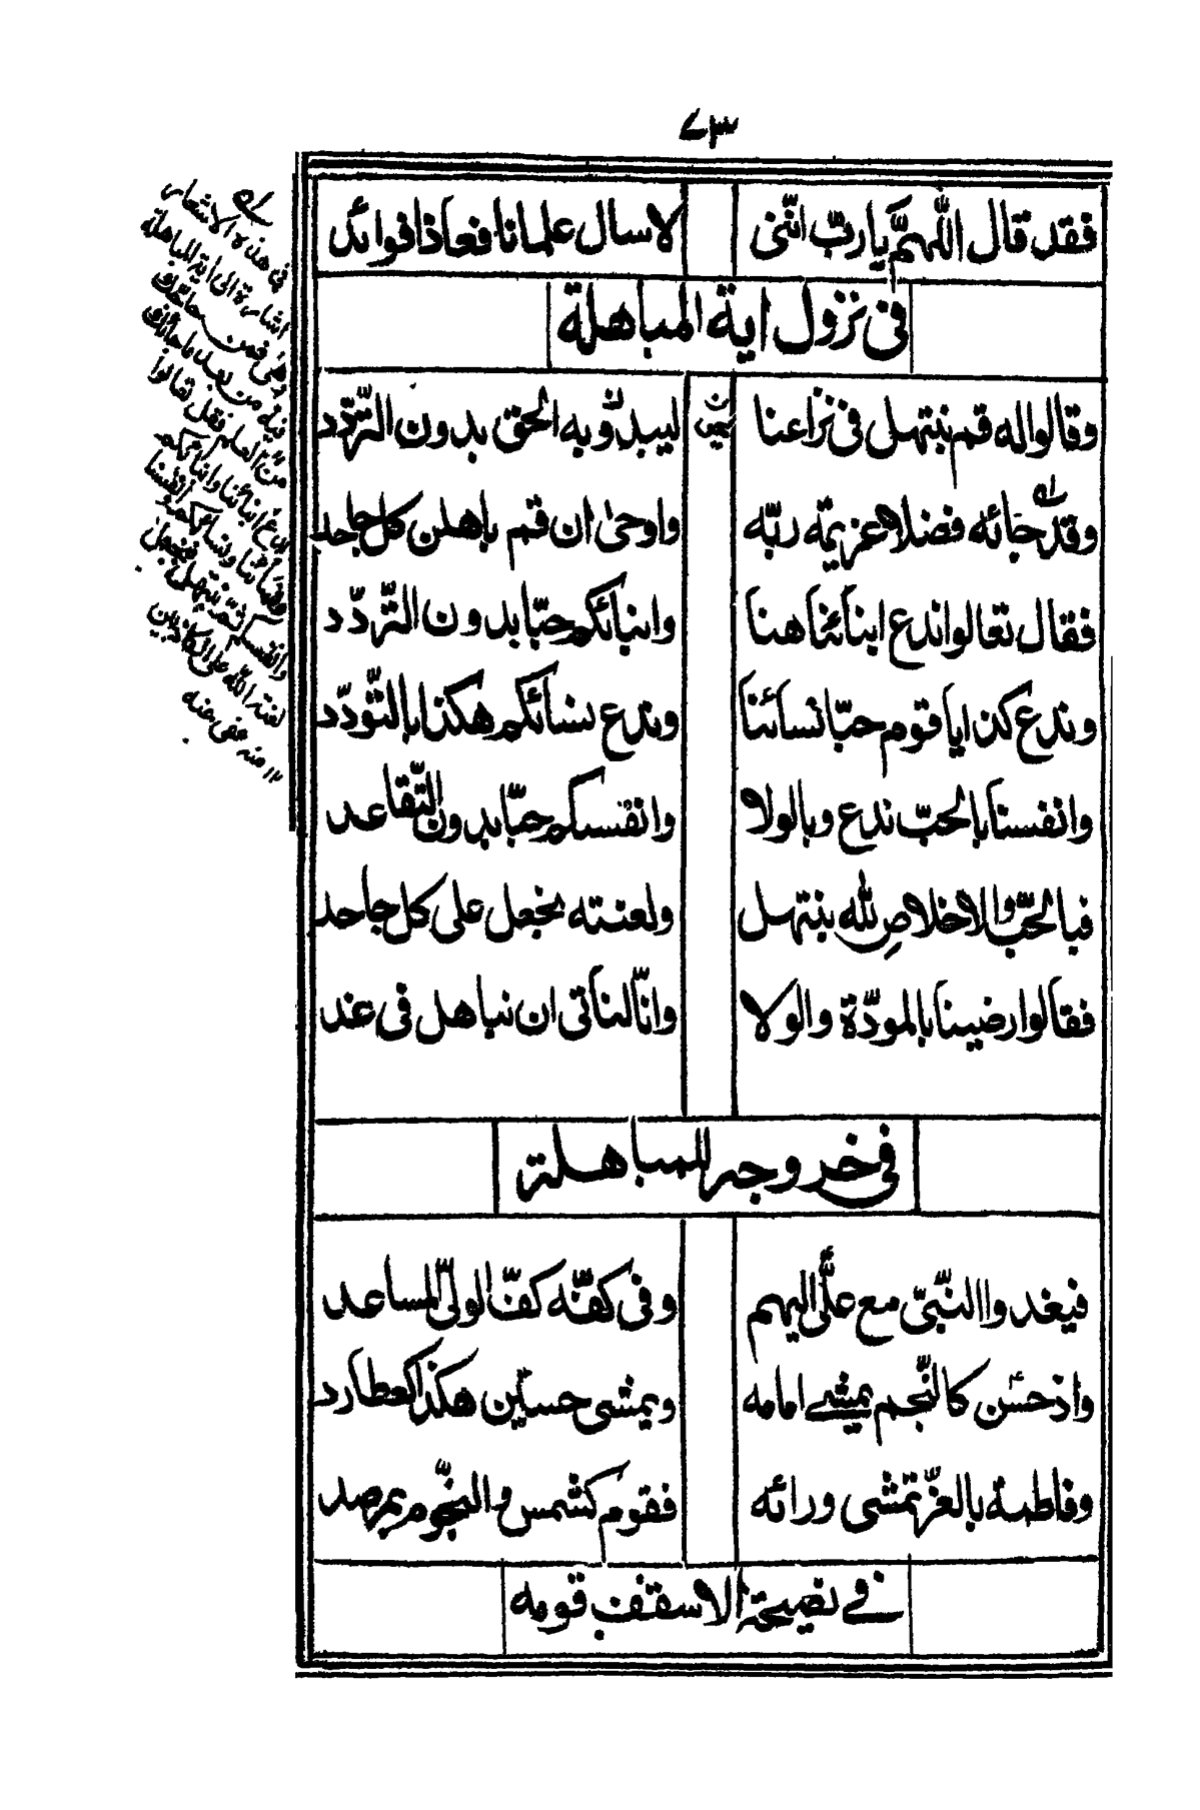 ٧٣
فقد قال اللّهمّ يا ربّ انّنى لاسال علما نافعا ذا فوائد
فى نزول اية المباهلة
وقالوا له قم نبتهل فى نزاعنا ليبدوّ به الحق بدون التّردّد
وقد جائه فضلا عزيمة ربّه واوحى ان قم باهلن كل جاحد
فقال تعالوا ندع ابنائنا هنا وابنائكم حبّا بدون التّردّد
وندع كذا يا قوم حبّا نسائنا وندع نسائكم هكذا بالتّودّد
وانفسنا بالحبّ ندع وبالولا وانفسكم حبّا بدون التّقاعد
فبالحبّ والاخلاص لله نبتهل ولعنته نجعل على كل جاحد
فقالوا رضينا بالمودّة والولا وانّا لنأتى ان نباهل فى غد
فى خروجه للمباهلة
فيغدوا النّبىّ مع علىّ اليهم وفى كفّه كفّ الولىّ المساعد
واذ حسن كالنّجم يمشے امامه ويمشى حسين هكذا كعطارد
وفاطمة بالعزّ تمشى ورائه فقوم كشمس والنّجوم بمرصد
فے نصيحة الاسقف قومه
فى هذه الاشعار
اشارة الى اية المباهلة
وهى فمن حاجّك
فيه من بعد ما جائك
من العلم فقل تعالوا
ندع ابنائنا وابنائكم
ونسائنا ونسائكم وانفسنا
وانفسكم ثمّ نبتهل فنجعل
لعنة اللّه على الكاذبين
١٢ منه عفى عنه